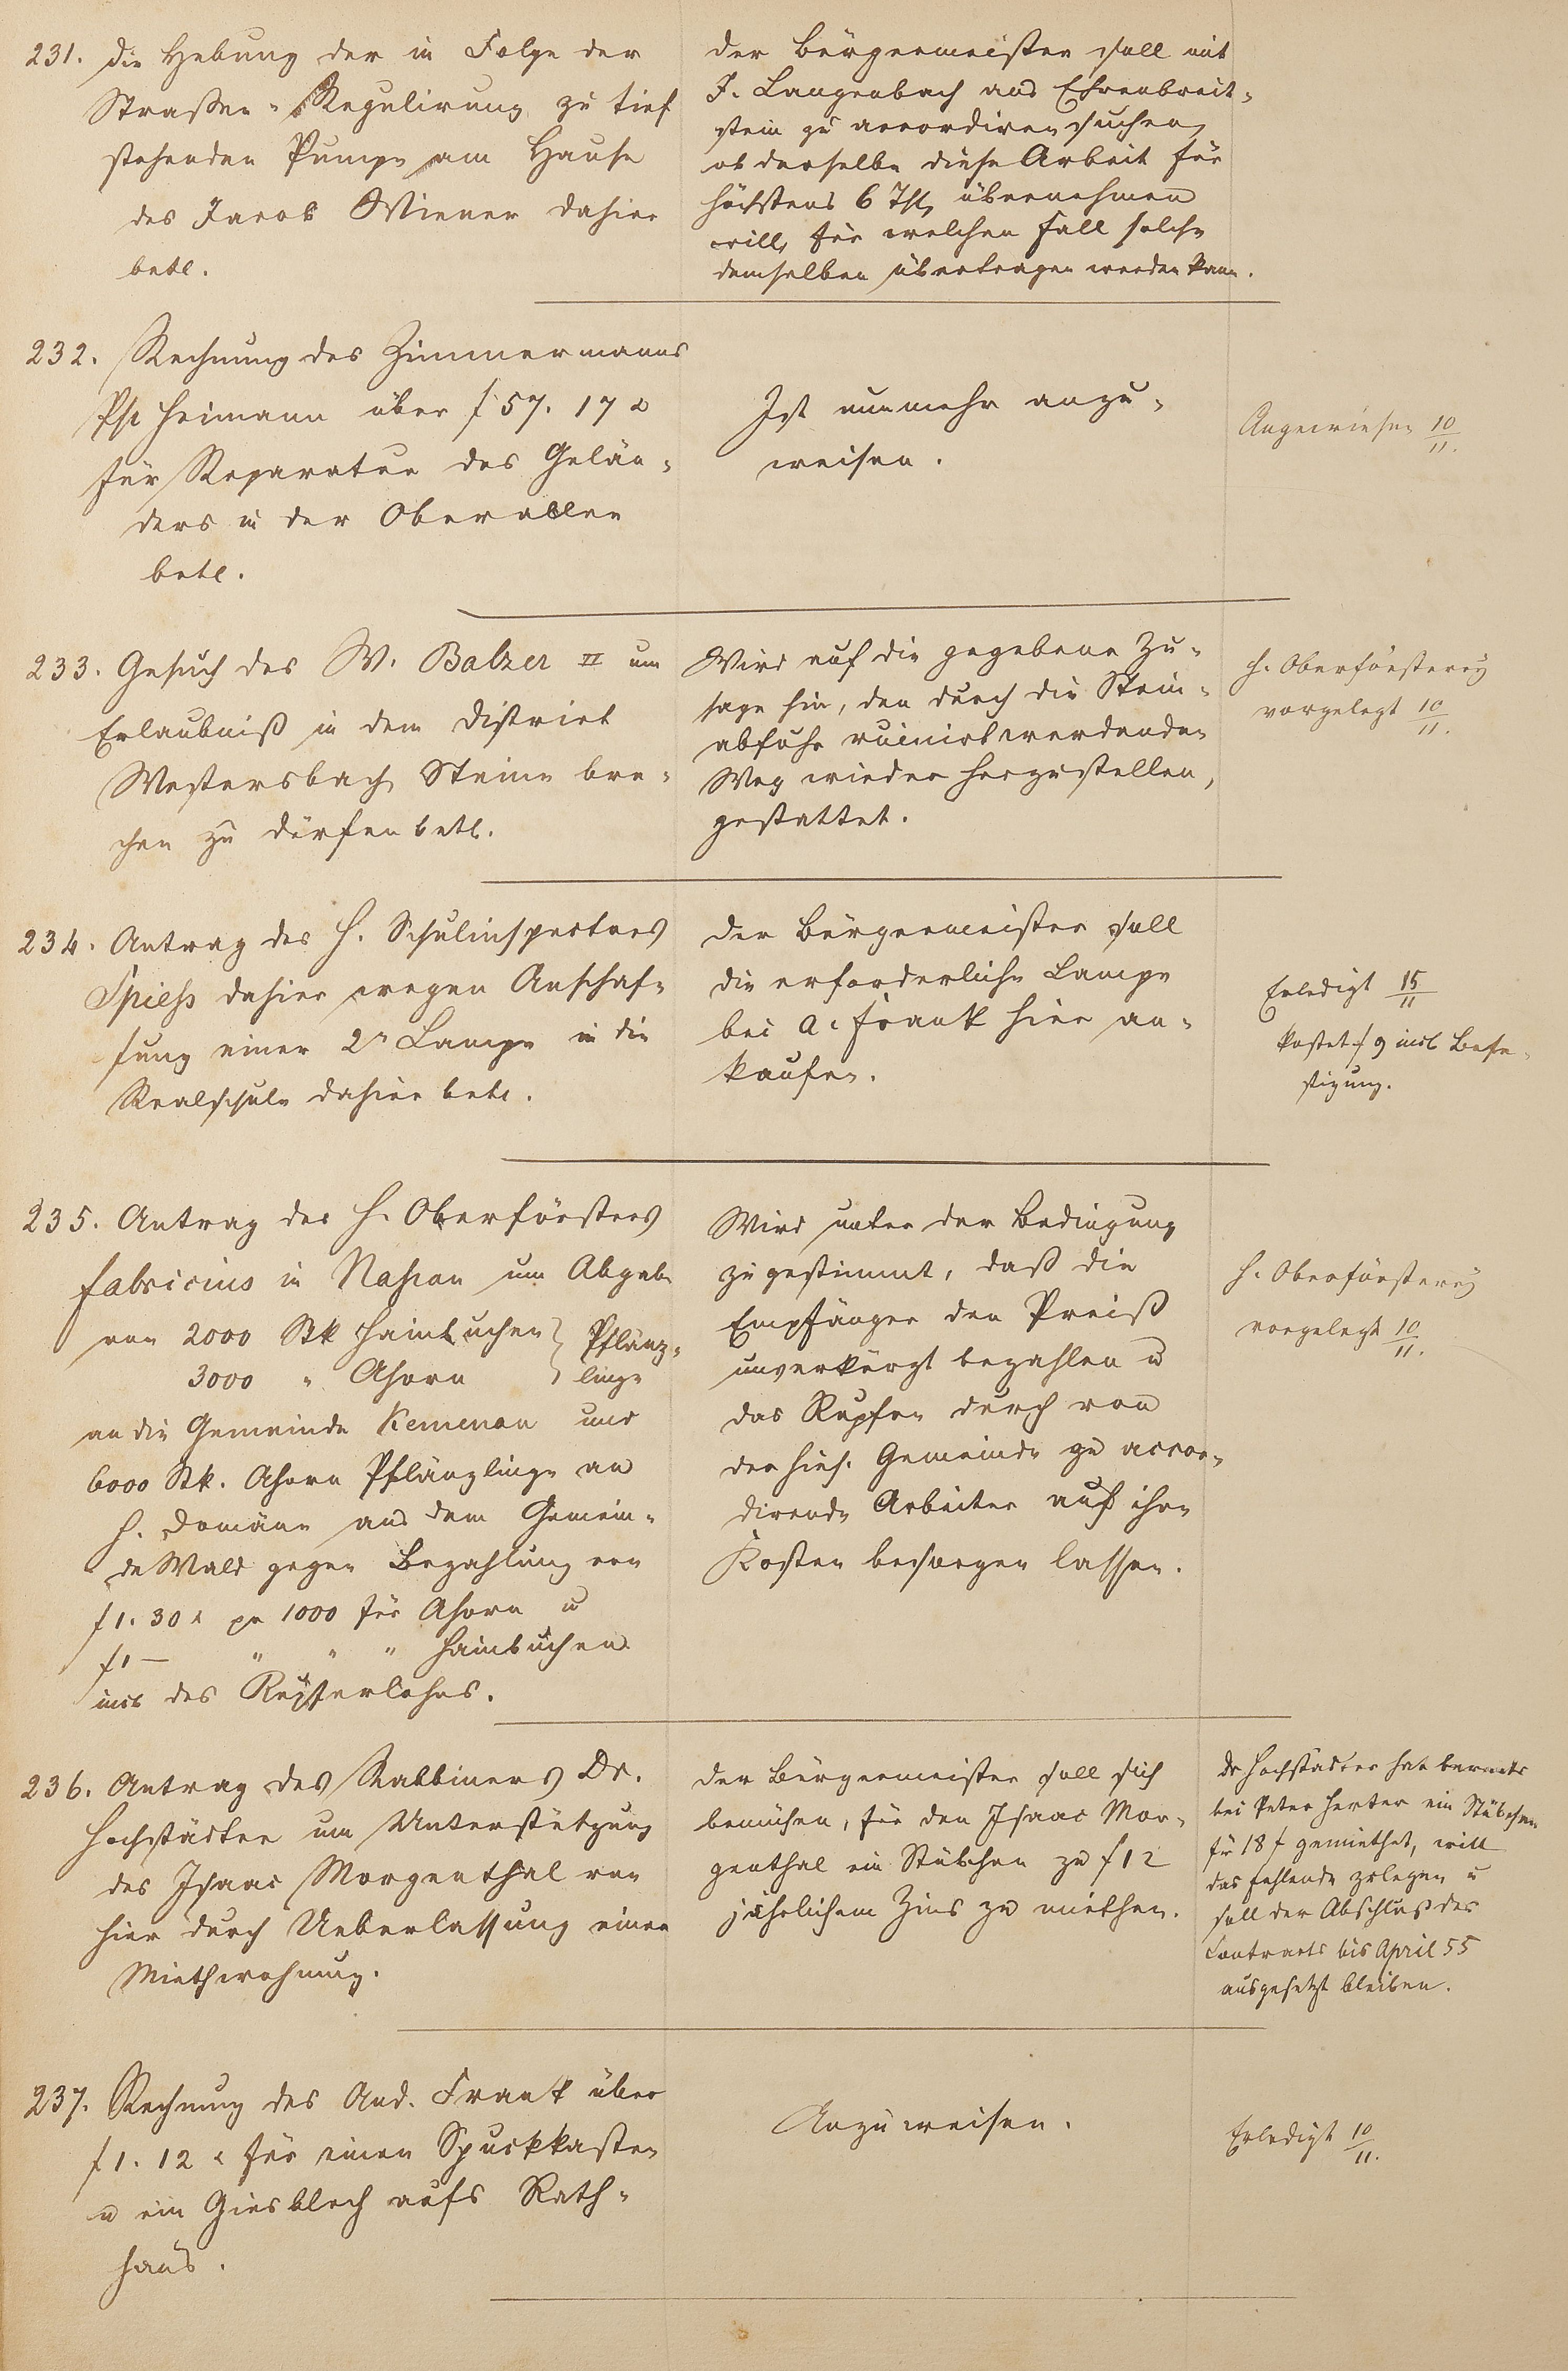 231. Die Hebung der in Folge der
Straßen-Regulirung zu tief
stehenden Pumpe am Hause
des Jacob Wiener dahier
betr.
Der Bürgermeister soll mit
J. Langenbach aus Ehrenbreit-
stein zu accordiren suchen,
ob derselbe diese Arbeit für
höchstens 6 Thlr übernehmen
will, für welchen Fall solche
demselben übertragen werden kann.
232. Rechnung des Zimmermanns
Ph Heimann über f 57. 17 x
für Reparatur des Gelän-
ders in der Oberallee
betr.
Ist nunmehr anzu-
weisen.
Angewiesen 10/11.
233. Gesuch des W. Balzer II um
Erlaubniß in dem District
Westersbach Steine bre-
chen zu dürfen betr.
Wird auf die gegebene Zu-
sage hin, den durch die Stein-
abfuhr ruinirt werdenden
Weg wieder herzustellen,
gestattet.
H. Oberförsterey
vorgelegt 10/11.
234. Antrag des H. Schulinspectors
Spiess dahier wegen Anschaf-
fung einer 2n Lampe in die
Realschule dahier betr.
Der Bürgermeister soll
die erforderliche Lampe
bei A. Frank hier an-
kaufen.
Erledigt 15/11
kostet f 9 incl Befe-
stigung.
235. Antrag des H. Oberförsters
Fabricius in Nassau um Abgabe
von 2000 Stk Hainbuchen } Pflänz-
3000 " Ahorn } linge
an die Gemeinde Kemenau und
6000 Stk. Ahorn Pflänzlinge an
H. Domäne aus dem Gemein-
de Wald gegen Bezahlung von
f 1. 30 x pr 1000 für Ahorn u
f 1 — " " " Hainbuchen
incl des Rupferlohns.
Wird unter der Bedingung
zugestimmt, daß die
Empfänger den Preiß
unverkürzt bezahlen u
das Rupfen durch von
der hies. Gemeinde zu accor-
dirende Arbeiter auf ihre
Kosten besorgen lassen.
H. Oberförsterey
vorgelegt 10/11.
236. Antrag des Rabbiners Dr.
Hochstädter um Unterstützung
des Isaac Morgenthal von
hier durch Ueberlassung einer
Miethwohnung.
Der Bürgermeister soll sich
bemühen, für den Isaac Mor-
genthal ein Stübchen zu f 12
jährlichem Zins zu miethen.
Dr Hochstädter hat bereits
bei Peter Herter ein Stübchen
für 18 f gemiethet, will
das fehlende zulegen u
soll der Abschluß des
Contracts bis April 55
ausgesetzt bleiben.
237. Rechnung des And. Frank über
f 1. 12 x für einen Spuckkasten
u ein Giesblech aufs Rath-
haus.
Anzuweisen.
Erledigt 10/11.